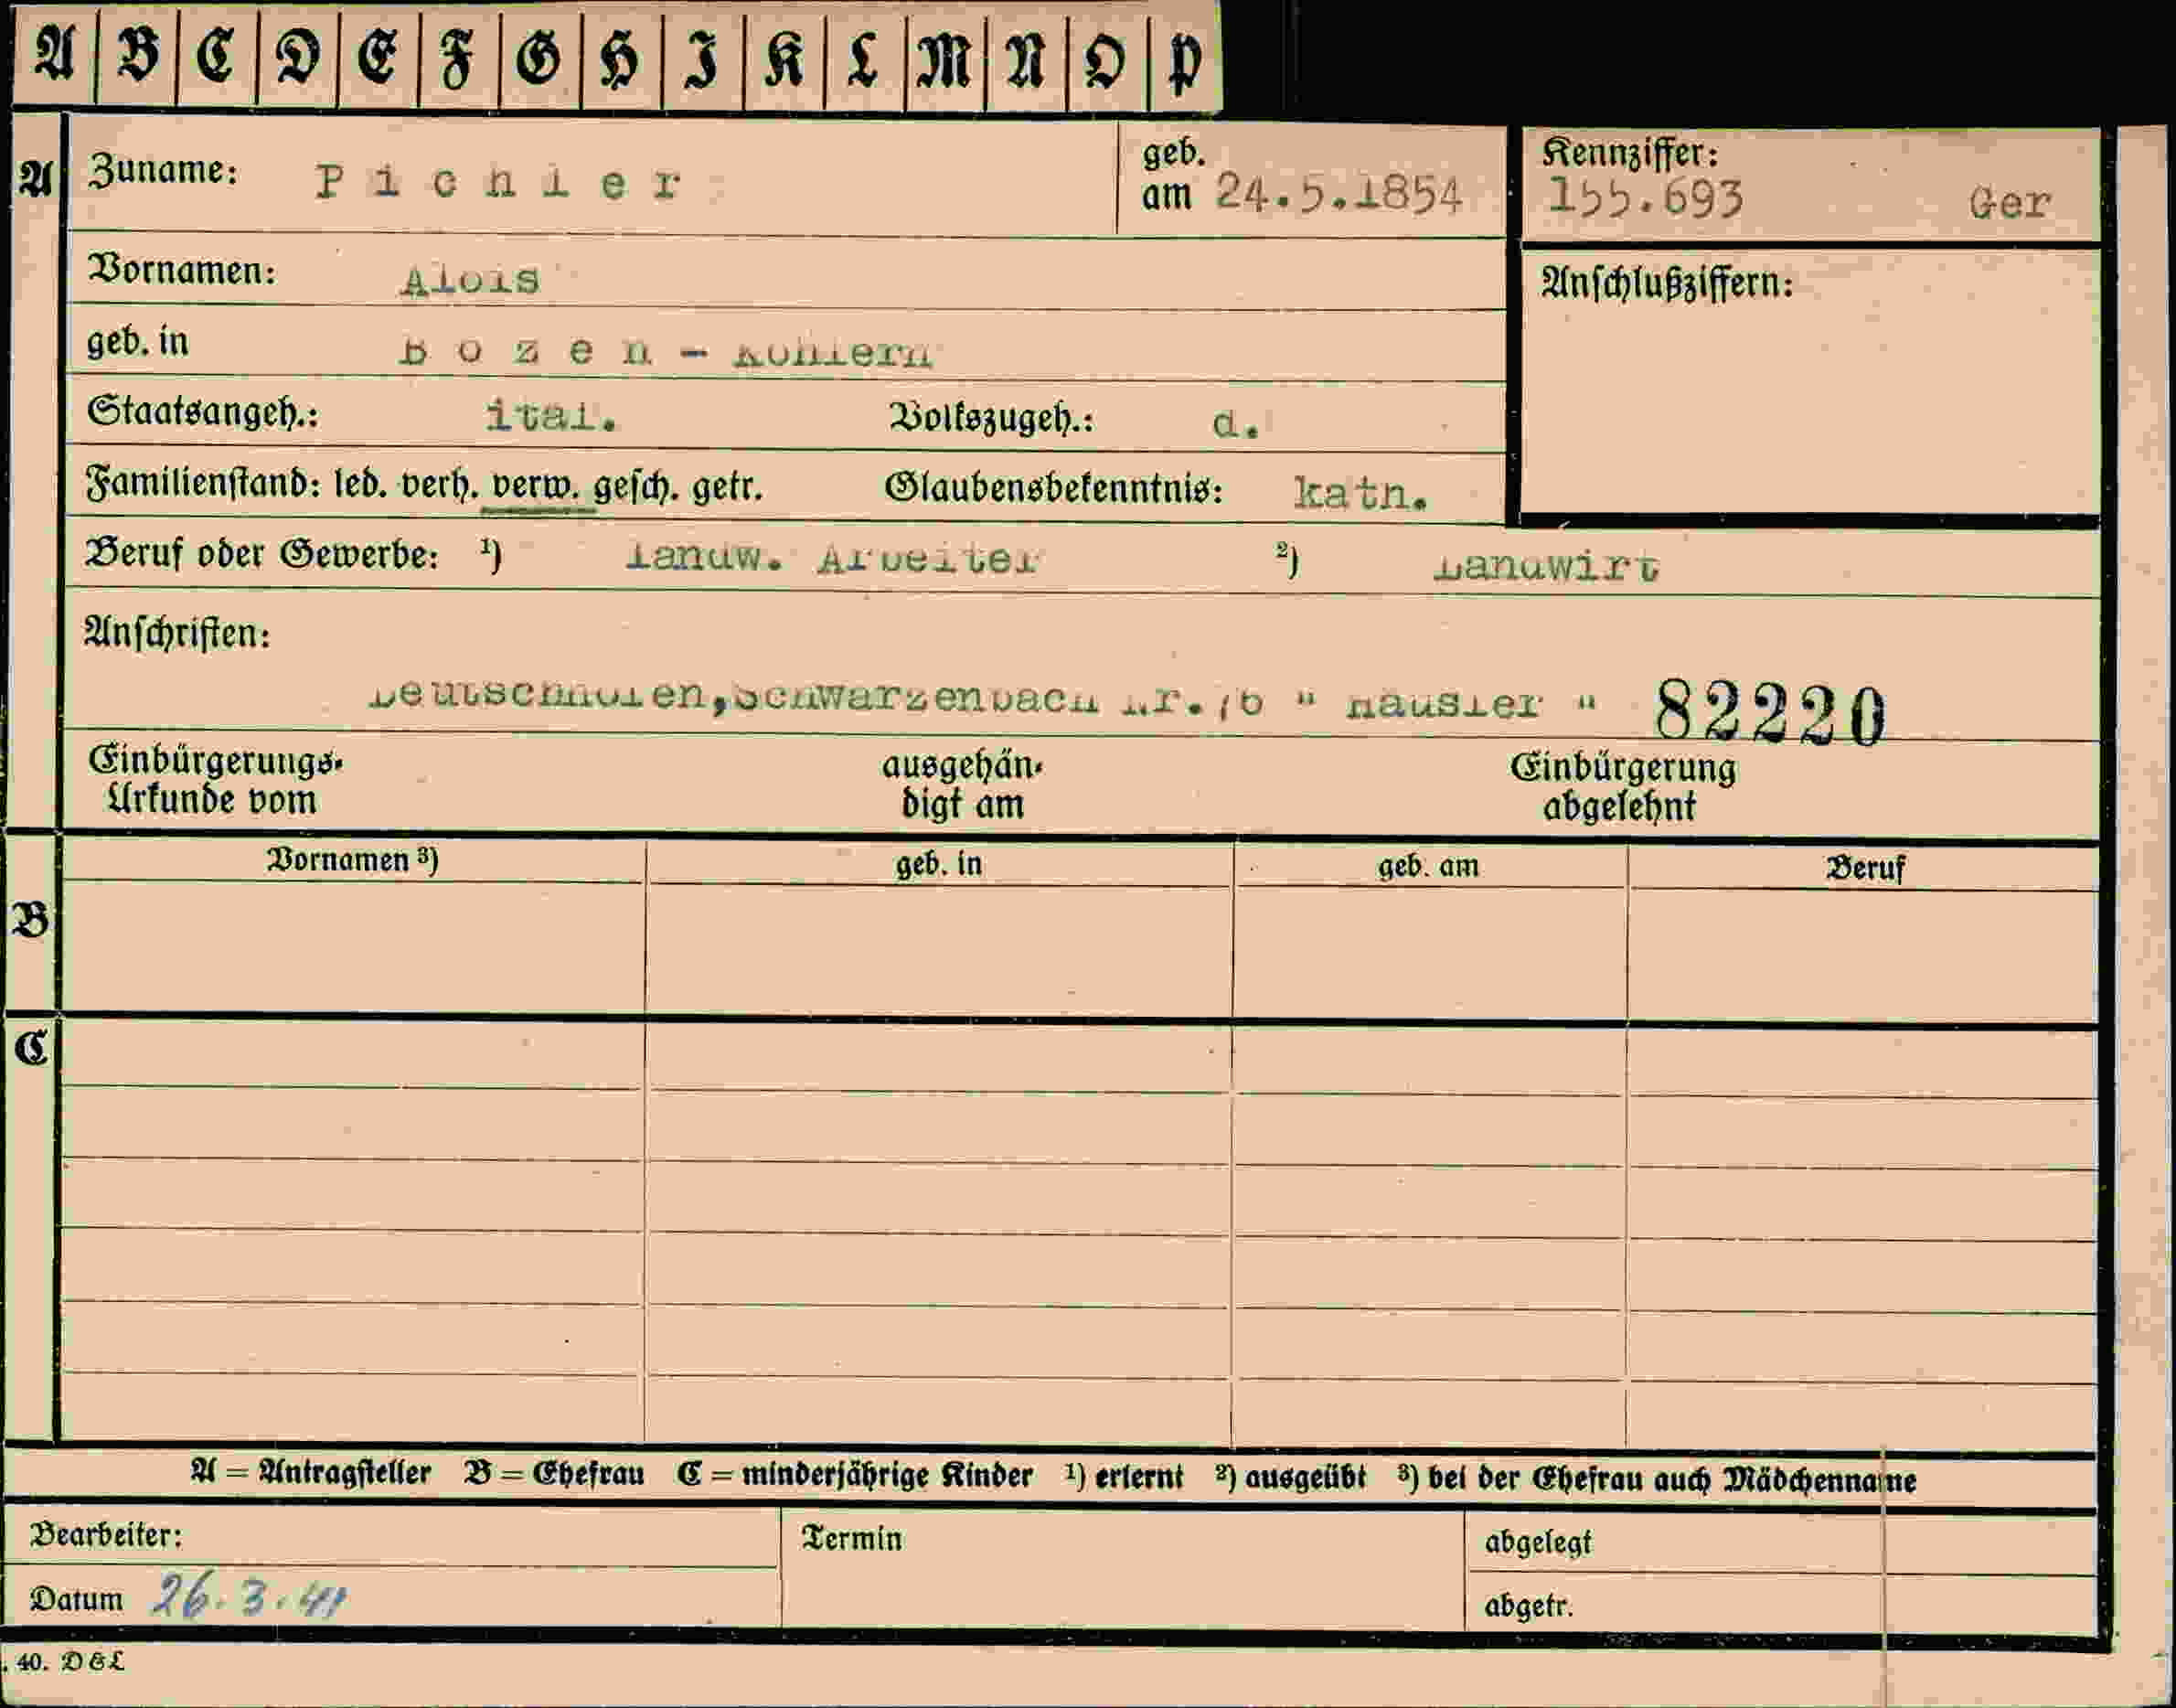 A B C D E F G H I K L M N O P
A Zuname: Pichler geb. am 24.5.1854 Kennziffer: 155.693 Ger
Vornamen: Alois
Anschlußziffern:
geb. in Bozen - Kohlern
Staatsangeh.: ital. Volkszugeh.: d.
Familienstand: led. verh. verw. gesch. getr. Glaubensbekenntnis: kath.
Beruf oder Gewerbe: 1) landw. Arbeiter 2) Landwirt
Anschriften:
Deutschnofen, Schwarzenbach Nr. 76 " Häusler " 82220
Einbürgerungs- ausgehän- Einbürgerung
Urkunde vom digt am abgelehnt
Vornamen 3) geb. in geb. am Beruf
B
C
A = Antragsteller B = Ehefrau C = minderjährige Kinder 1) erlernt 2) ausgeübt 3) bei der Ehefrau auch Mädchenname
Bearbeiter: Termin abgelegt
Datum 26.3.41 abgetr.
. 40. D&L